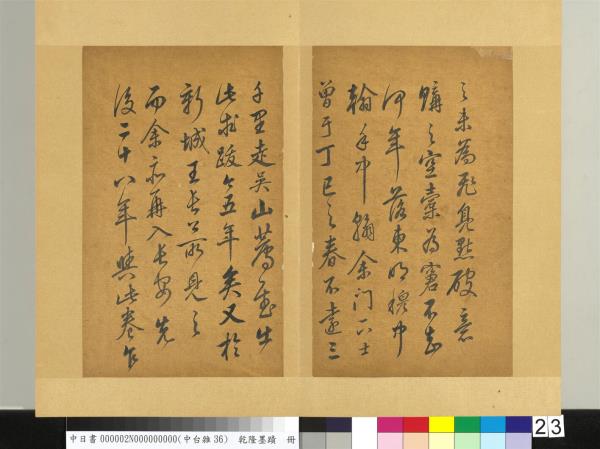 之未為飛鳧點破意
購之空橐為窘不知
何年落東明穆中
翰手中翰余門下士
曾于丁巳之春不遠三
千里走吳山出
此求跋今五年矣又於
新城王長公所見之
而余亦再入長安先
後二十八年與此卷乍
中日書 000002N000000000(中台雜36) 乾隆墨蹟 冊
23